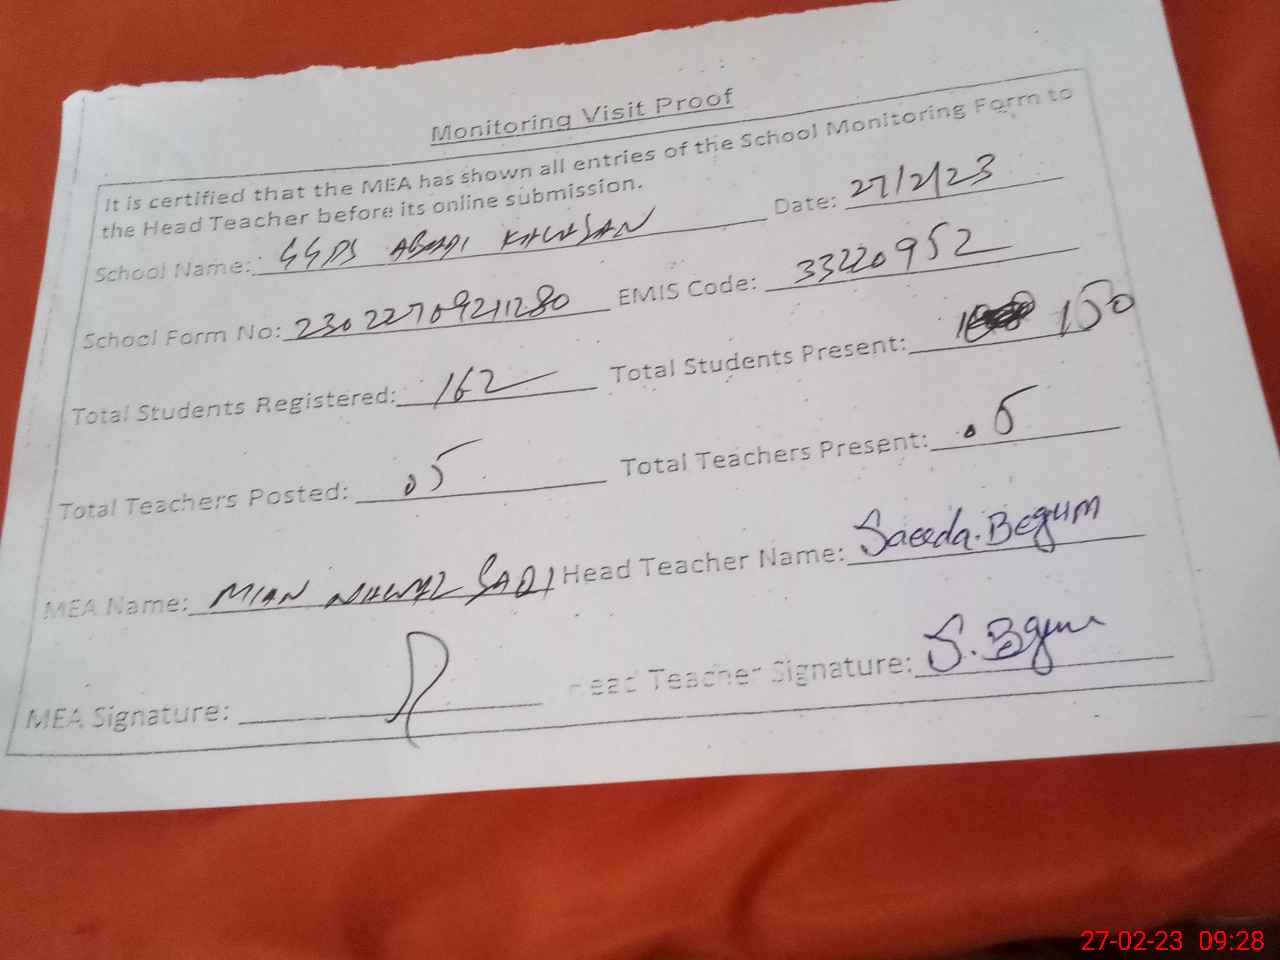 Monitoring Visit Proof
It is certified that the MEA has shown all entries of the School Monitoring Form to
the Head Teacher before its online submission.
School Name: GGPS ABADI Date: 27/2/23
School Form No: 23022709211280 EMIS Code: 33220952
Total Students Registered: 162 Total Students Present: 150
Total Teachers Posted: 05 Total Teachers Present: 05
MEA Name: MIAN NAWAZ Head Teacher Name: Saeeda. Begum
MEA Signature: Head Teacher Signature: S. Bgum
27-02-23 09:28